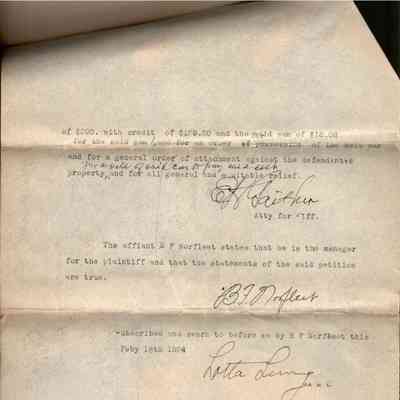 of $200. with credit of $120.00 and the said sum of $15.00
for the said gun and for an order of possession of the said car
and for a general order of attachment against the defendants
property and for all general and equitable relief.
Atty for Plff.
The affiant B F Norfleet states that he is the manager
for the plaintiff and that the statements of the said petition
are true.
B.F. Norfleet
Subscribed and sworn to before me by B F Norfleet this
Feby 18th 1924
Lotta